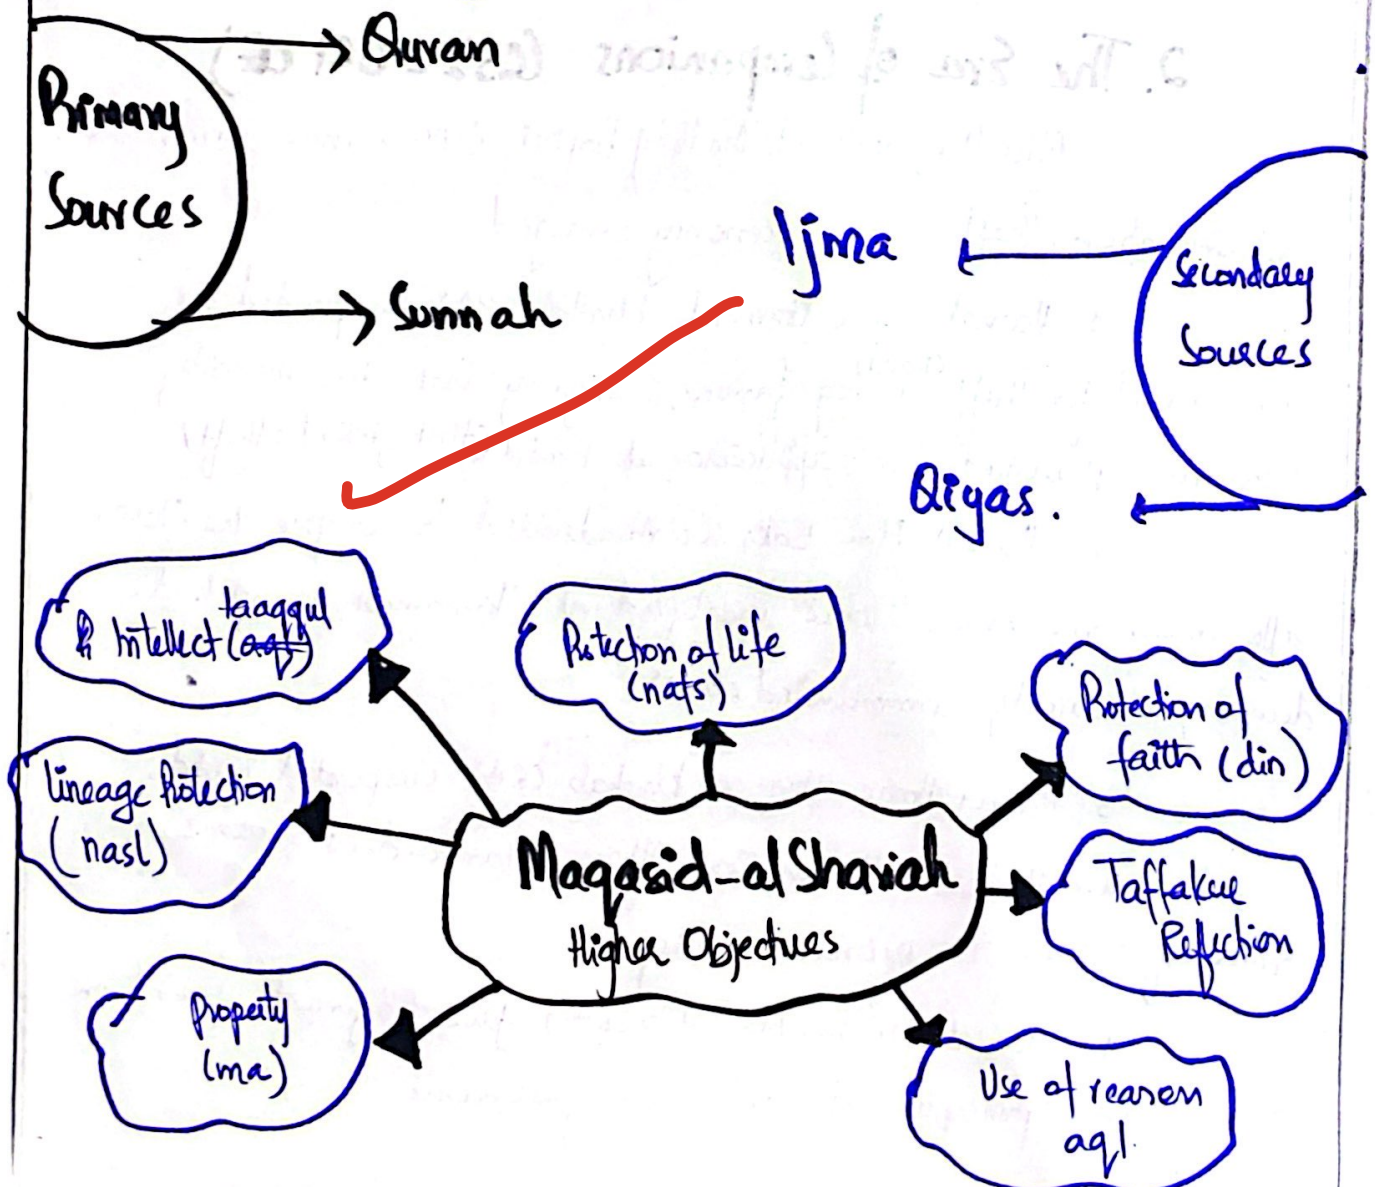 Primary
Sources
Quran
Sunnah
Secondary
Sources
Ijma
Qiyas.
taaqqul
Intellect (aql)
Protection of life
(nafs)
Protection of
faith (din)
Lineage Protection
(nasl)
Maqasid-al Shariah
Higher Objectives
Taffakur
Reflection
Property
(ma)
Use of reason
aql.